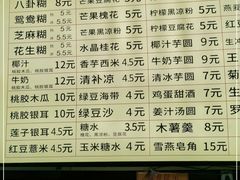 八卦糊 8元
鸳鸯糊 8元
芝麻糊 5.5元
花生糊 5.5元
椰汁 12元
牛奶 12元
桃胶木瓜 10元
桃胶银耳 10元
莲子银耳 4.5元
红豆薏米 4.5元
芒果槐花
芒果黑凉粉
水晶桂花 5元
香芋西米 4.5元
清补凉 4.5元
绿豆海带 4元
绿豆沙 4元
糖水 3.5元
玉米糖水 4元
柠檬黑凉粉 5元
椰汁芋圆 9元
牛奶芋圆 9元
鸡蛋甜酒 7元
姜汁汤圆 7元
木薯羹 8元
雪燕皂角 15元